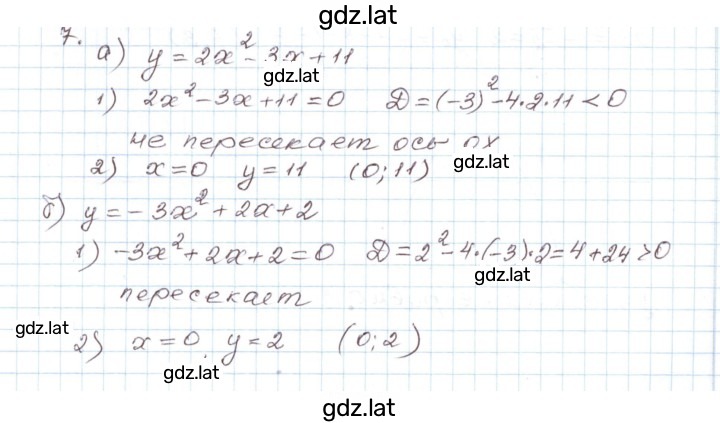 gdz.lat
7.
а) y = 2x² - 3x + 11
gdz.lat
1) 2x² - 3x + 11 = 0 D = (-3)² - 4·2·11 < 0
не пересекает ось ox
gdz.lat
2) x = 0 y = 11 (0; 11)
б) y = - 3x² + 2x + 2
1) -3x² + 2x + 2 = 0 D = 2² - 4·(-3)·2 = 4 + 24 > 0
gdz.lat
пересекает
gdz.lat
2) x = 0, y = 2 (0; 2)
gdz.lat
gdz.lat